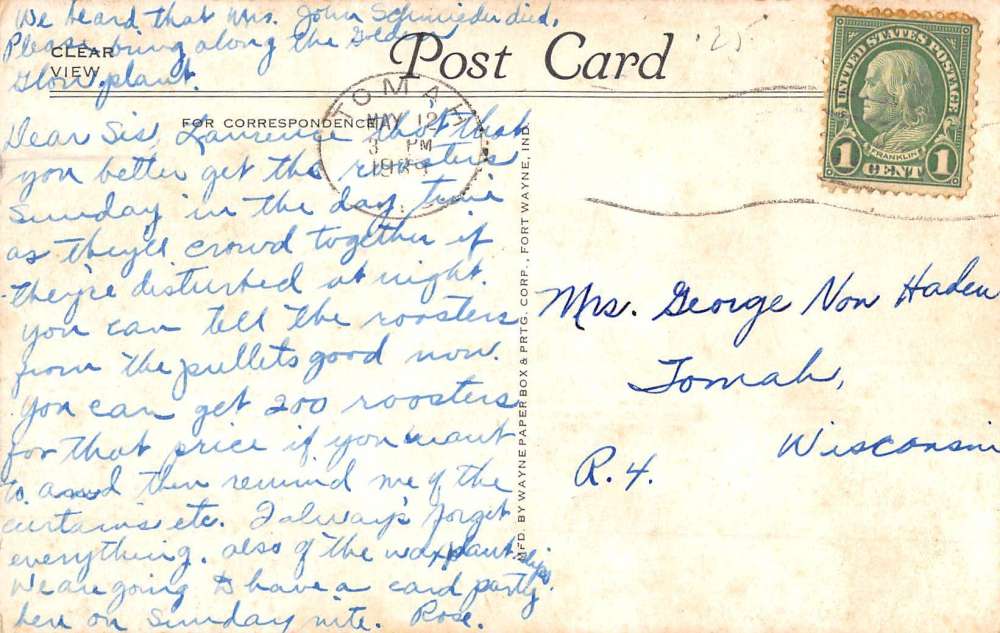 We heard that Mrs. John Schmieder died.
Please bring along the Golden
Glow plant.
CLEAR
VIEW
Post Card
'25
UNITED STATES POSTAGE
FRANKLIN
1 CENT 1
TOMAH
MAY 12
3 PM
FOR CORRESPONDENCE
Dear Sis, Laurence tho't that
you better get the roosters
Sunday in the day time
as they'll crowd together if
they're disturbed at night.
You can tell the roosters
from the pullets good now.
You can get 200 roosters
for that price if you want
to. and then remind me of the
curtains etc. I always forget
everything. also of the wax plant slips
We are going to have a card party
here on Sunday nite. Rose.
MFD. BY WAYNE PAPER BOX & PRTG. CORP., FORT WAYNE, IND.
Mrs. George Von Haden
Tomah,
Wisconsin
R. 4.